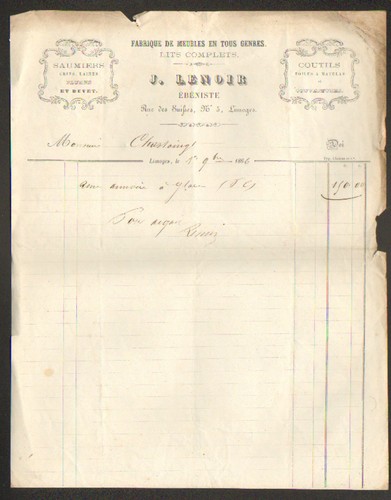 FABRIQUE DE MEUBLES EN TOUS GENRES.
LITS COMPLETS.
SAUMIERS
CRINS, LAINES
PLUMES
ET DUVET.
J. LENOIR
ÉBÉNISTE
Rue des Suisses, N° 5, Limoges.
COUTILS
TOILES A MATELAS
ET
COUVERTURES.
Monsieur Chastaingt Doit
Limoges, le 5 9bre 1866
Une armoire à glace 150 00
Pour acquit
Lenoir